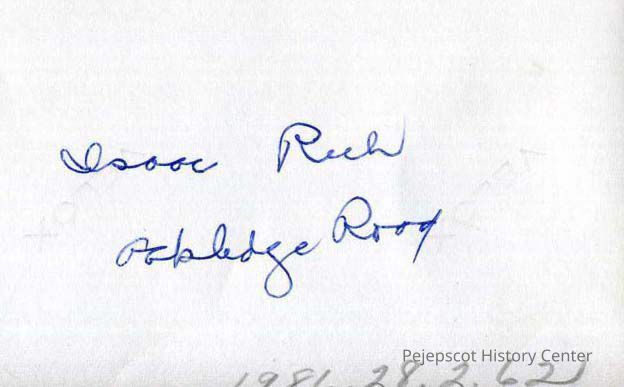 Isaac Rich
Oakledge Road
Pejepscot History Center
1981.28.2.621